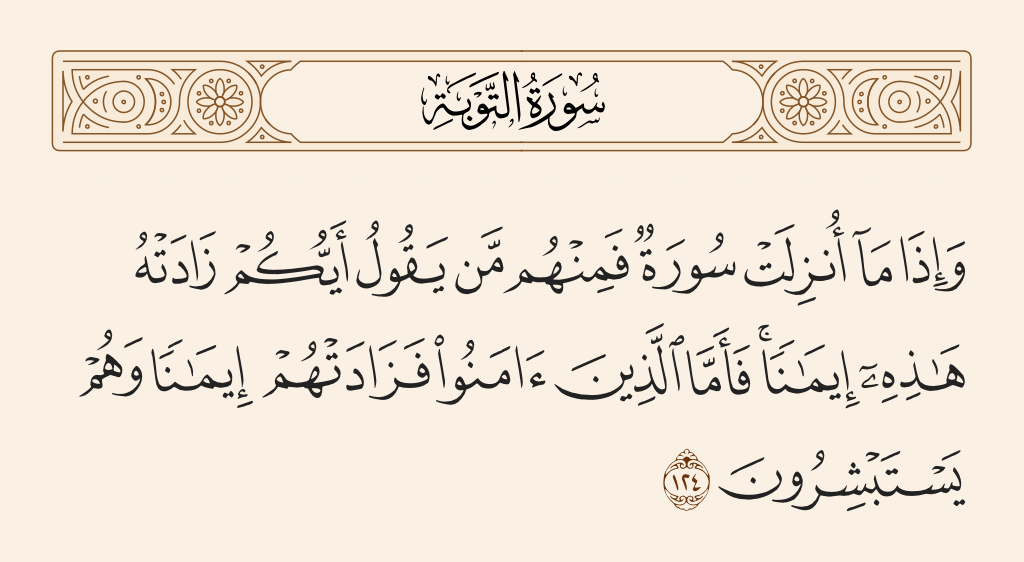 سُورَةُ التَّوْبَةِ
وَإِذَا مَآ أُنزِلَتْ سُورَةٌ فَمِنْهُم مَّن يَقُولُ أَيُّكُمْ زَادَتْهُ
هَـٰذِهِۦٓ إِيمَـٰنًا ۚ فَأَمَّا ٱلَّذِينَ ءَامَنُوا۟ فَزَادَتْهُمْ إِيمَـٰنًا وَهُمْ
يَسْتَبْشِرُونَ ١٢٤